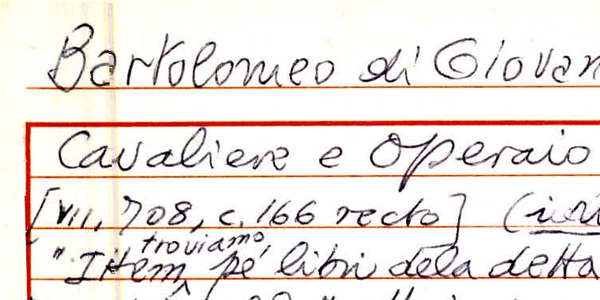 Bartolomeo di Giovan
Cavaliere e Operaio
[VII, 708, c. 166 recto]
troviamo,
"Item pe' libri dela detta